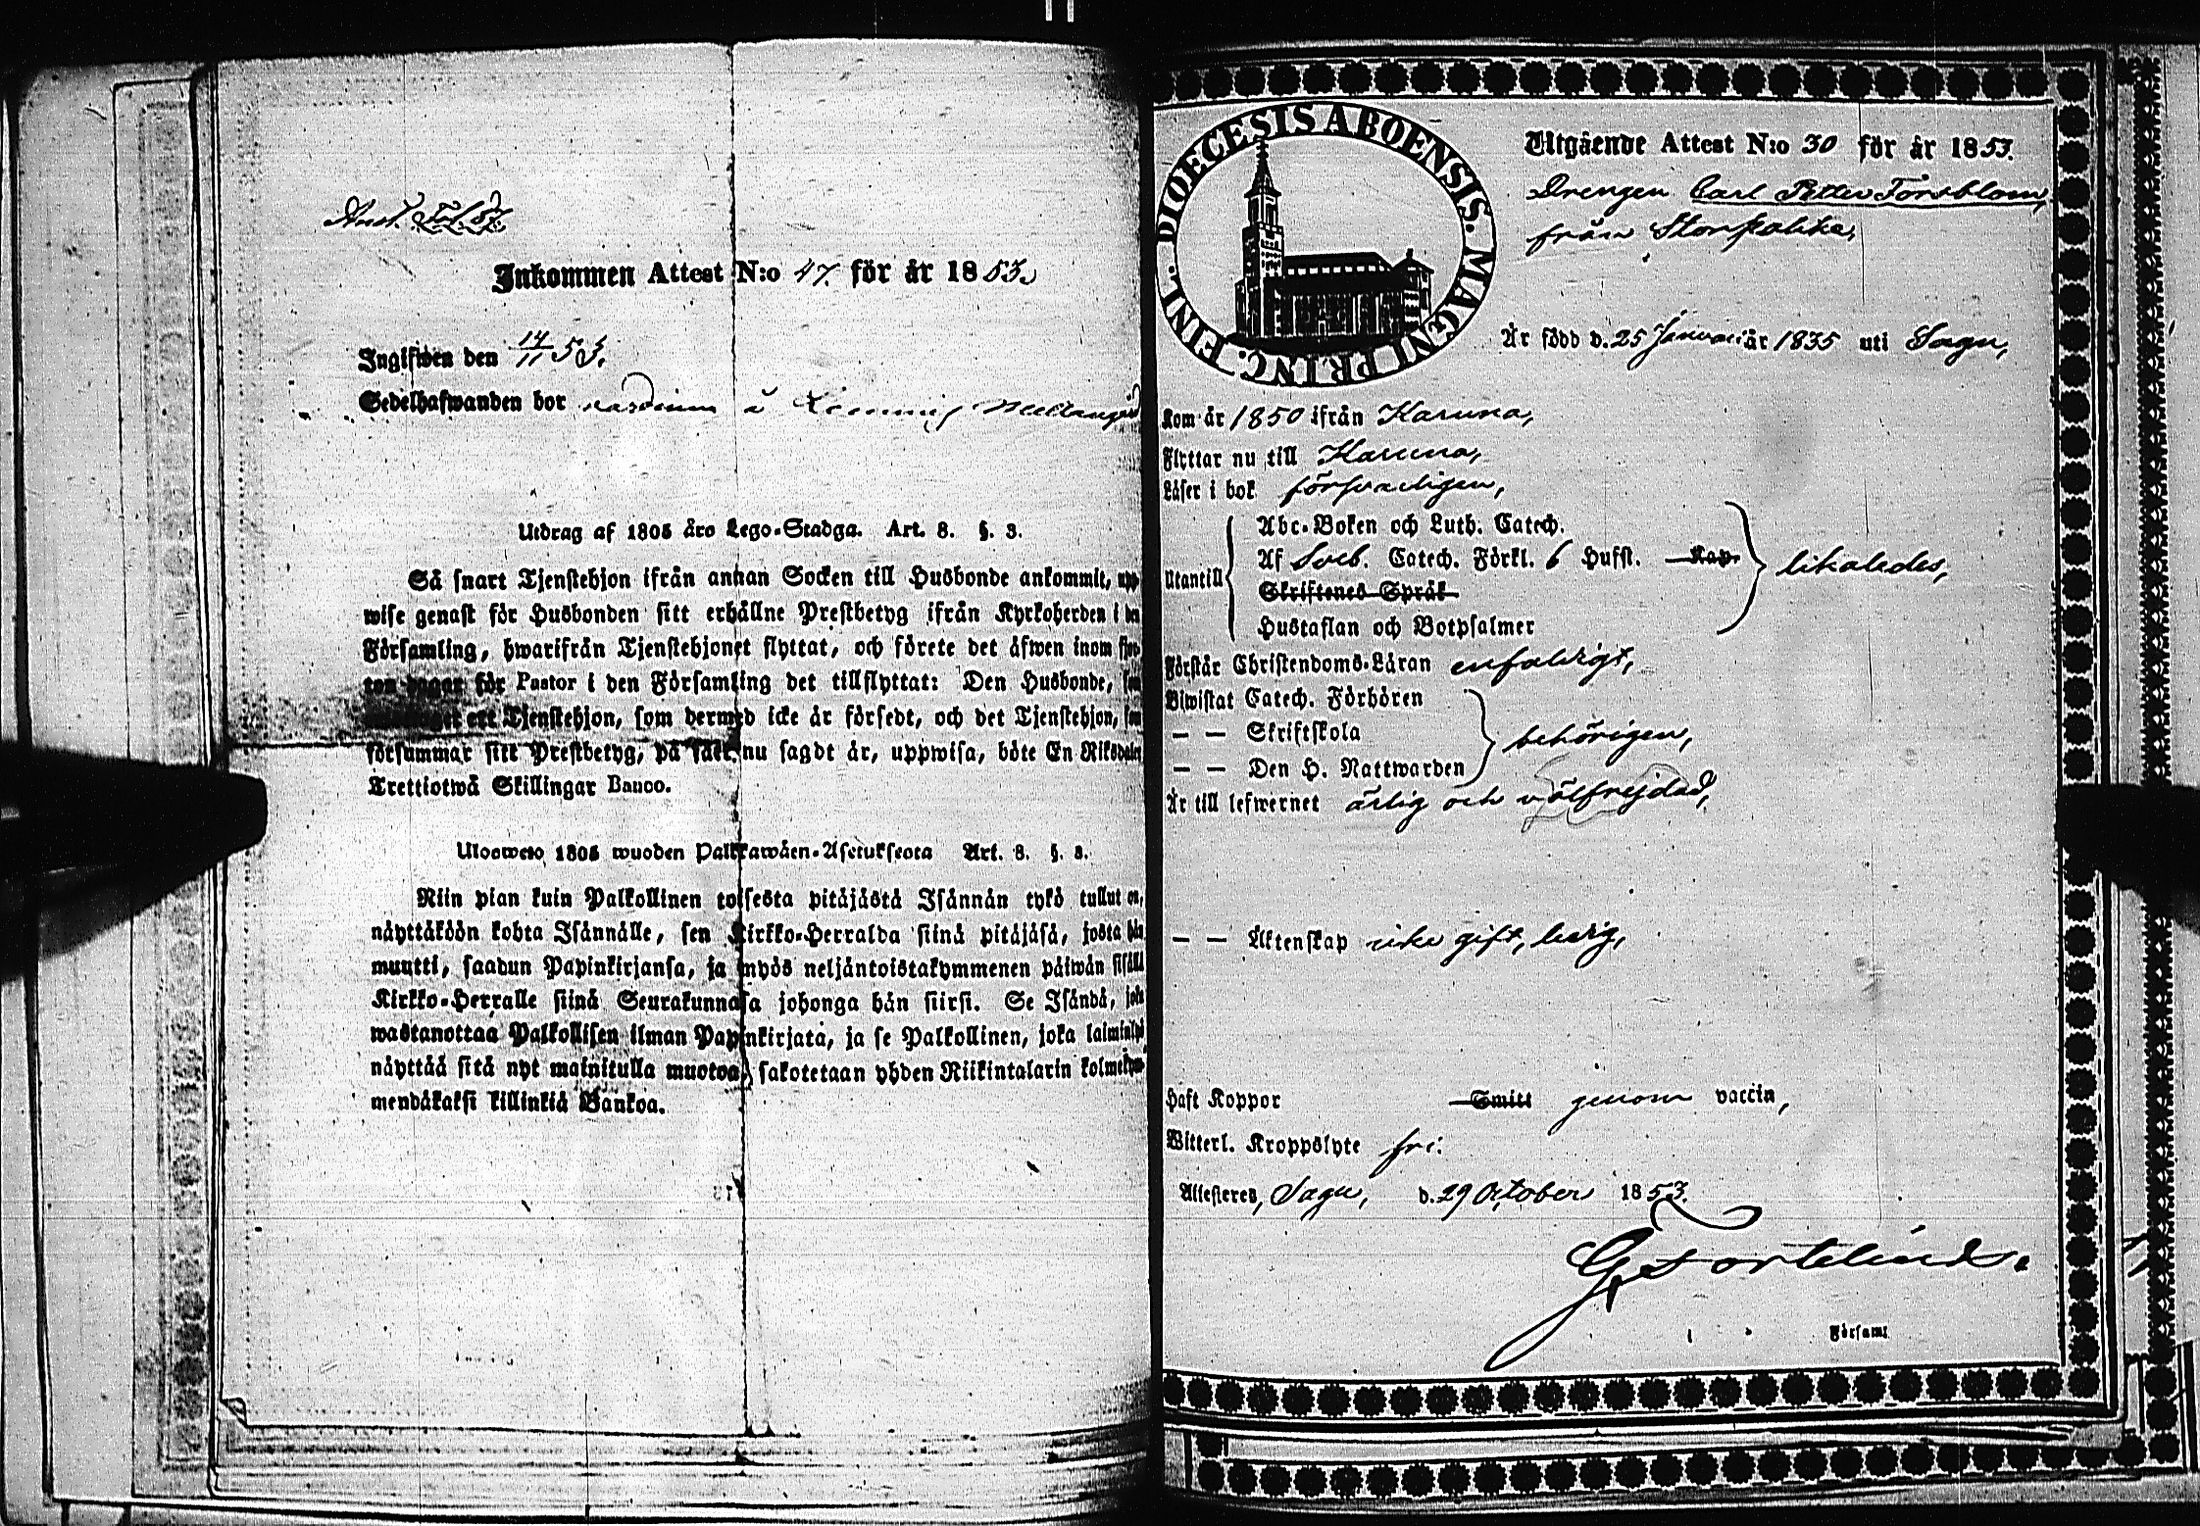 Anst. Fol. 57.
Inkommen Attest N:o 47. för år 1853.
Ingifwen den 14/11 53.
Sedelhafwanden bor nardinum å
Utdrag af 1805 års Lego-Stadga. Art. 8. §. 3.
Så snart Tjenstehjon ifrån annan Socken till Husbonde ankommit, upp
wise genast för Husbonden sitt erhållne Prestbetyg ifrån Kyrkoherden i den
Församling, hwarifrån Tjenstehjonet flyttat, och förete det äfwen inom fjor-
ton dagar för Pastor i den Församling det tillflyttat: Den Husbonde, som
ett Tjenstehjon, som dermed icke är försedt, och det Tjenstehjon, som
försummar sitt Prestbetyg, på sätt nu sagdt är, uppwisa, böte En Riksdaler
Trettiotwå Skillingar Banco.
Ulosweto 1805 wuoden Palkkawäen-Asetuksesta Art. 8. §. 3.
Niin pian kuin Palkollinen toisesta pitäjästä Isännän tykö tullut on,
näyttäköön kohta Isännälle, sen Kirkko-Herralda siinä pitäjäsä, josta hän
muutti, saadun Papinkirjansa, ja myös neljäntoistakymmenen päiwän sisällä
Kirkko-Herralle siinä Seurakunnasa johonga hän siirsi. Se Isändä, joka
wastanottaa Palkollisen ilman Papinkirjata, ja se Palkollinen, joka laiminlyö
näyttää sitä nyt mainitulla muotoa, sakotetaan yhden Riikintalarin kolmekym-
mendäkaksi killinkiä Bankoa.
DIOECESIS ABOENSIS. MAGNI PRINC. FINL.
Utgående Attest N:o 30 för år 1853.
Drengen Carl Petter Forsblom,
från Storpahka,
Är född d. 25 Januari år 1835 uti Sagu,
Kom år 1850 ifrån Karuna,
Flyttar nu till Karuna,
Läser i bok försvarligen,
Utantill Abc-Boken och Luth. Catech.
Af Sveb. Catech. Förkl. 6 Hufst. Kap.
Skriftenes Språk
Hustaflan och Botpsalmer
likaledes,
Förstår Christendoms-Läran enfaldigt,
Biwistat Catech. Förhören
— — Skriftskola
— — Den H. Nattwarden
behörigen,
Är till lefwernet ärlig och välfrejdad,
— — Äktenskap icke gift, ledig,
Haft Koppor Smitt genom vaccin,
Witterl. Kroppslyte fri:
Attesteres, Sagu, d. 29 October 1853.
G. Forteli​us.
i Församl.